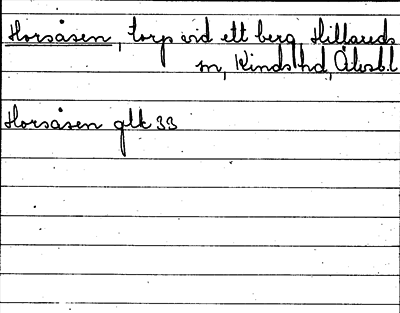 Horsåsen, torp vid ett berg, Hillareds
sn, Kinds hd, Älvsb.l
Horsåsen glk 33